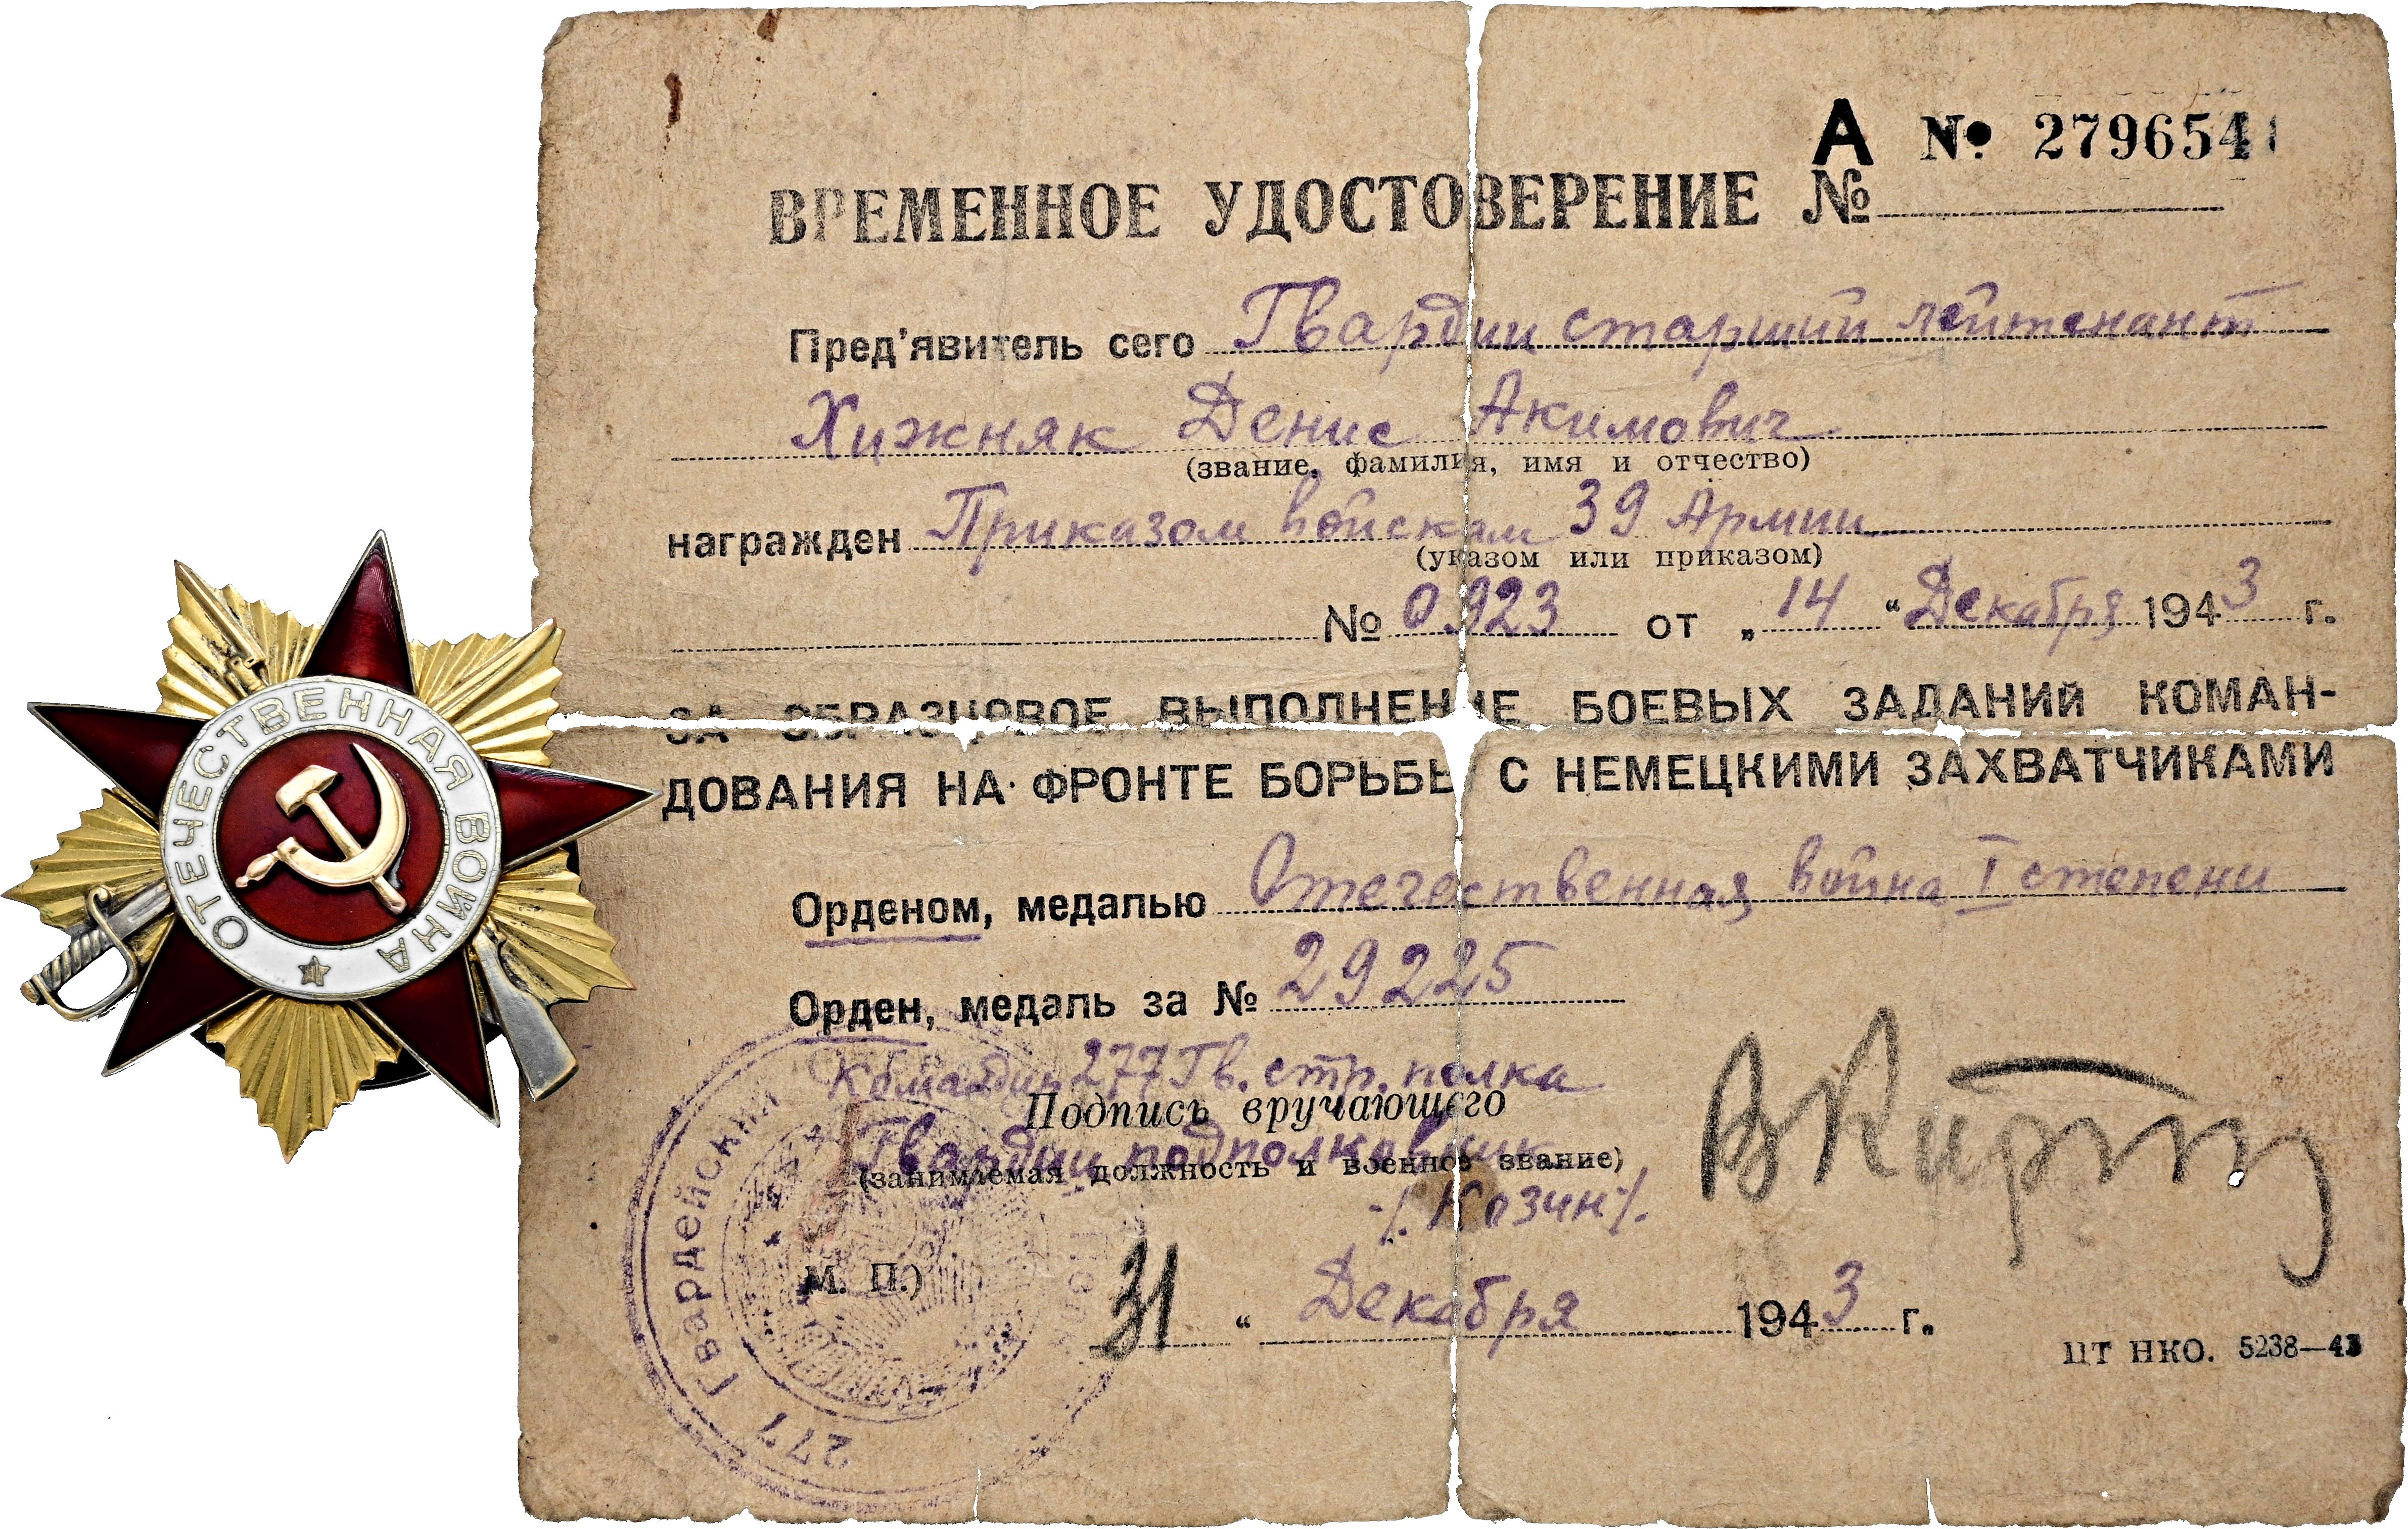 ОТЕЧЕСТВЕННАЯ ВОЙНА
А № 279654
ВРЕМЕННОЕ УДОСТОВЕРЕНИЕ №
Пред'явитель сего Гвардии старший лейтенант
Хижняк Денис Акимович
(звание, фамилия, имя и отчество)
награжден Приказом войскам 39 Армии
(указом или приказом)
№ 0923 от „14“ Декабря 1943 г.
ЗА ОБРАЗЦОВОЕ ВЫПОЛНЕНИЕ БОЕВЫХ ЗАДАНИЙ КОМАН-
ДОВАНИЯ НА ФРОНТЕ БОРЬБЫ С НЕМЕЦКИМИ ЗАХВАТЧИКАМИ
Орденом, медалью Отечественная война I степени
Орден, медаль за № 29225
Командир 277 Гв. стр. полка
Подпись вручающего
Гвардии подполковник
(занимаемая должность и военное звание)
-/. Козин/.
М. П.)
31 “ Декабря 1943 г.
ЦТ НКО. 5238—43
277 Гвардейский